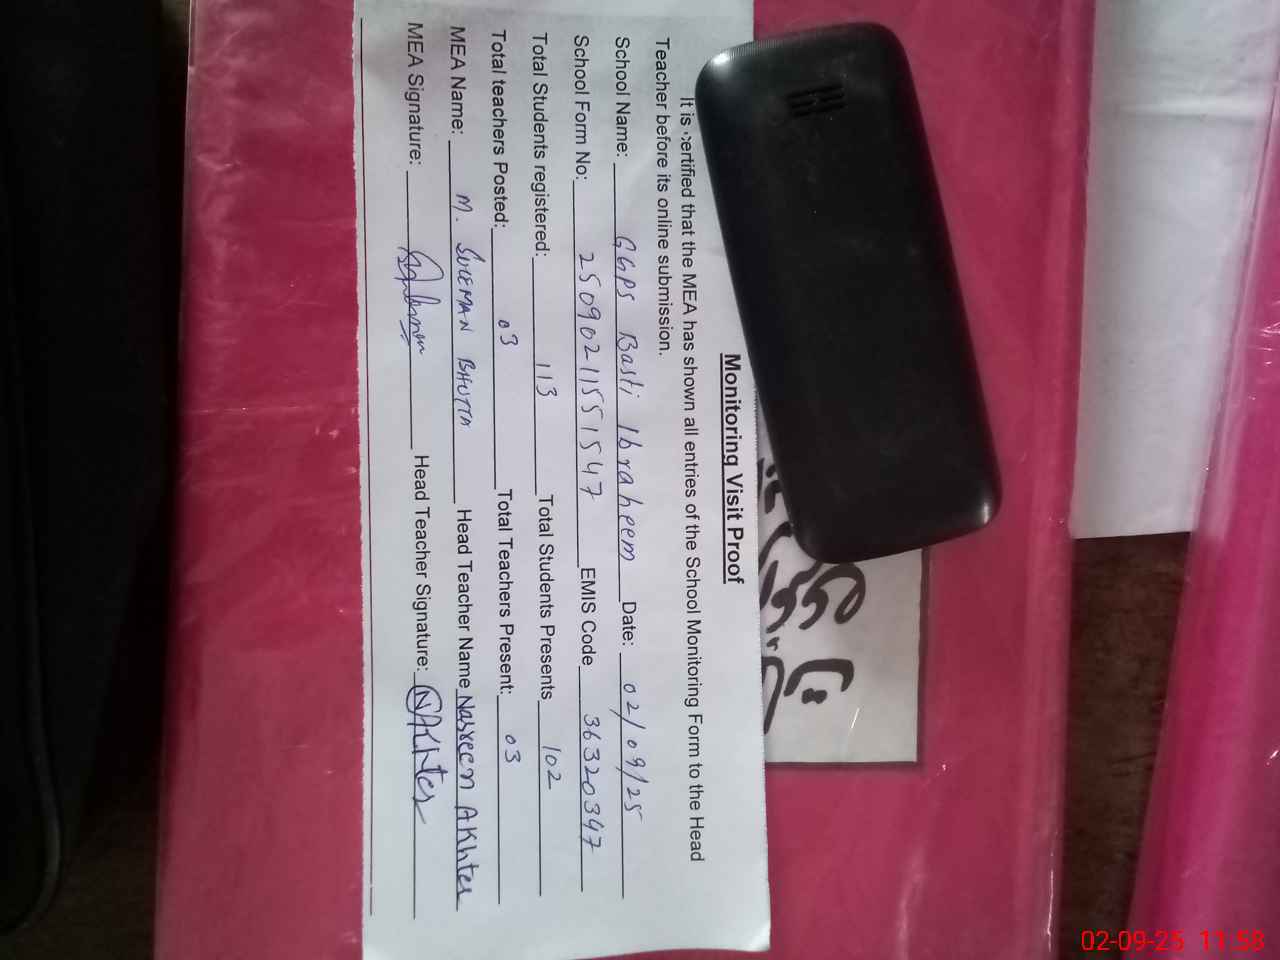 Monitoring Visit Proof
It is certified that the MEA has shown all entries of the School Monitoring Form to the Head
Teacher before its online submission.
School Name: GGPS Basti Ibraheem Date: 02/09/25
School Form No: 25090211551547 EMIS Code 36320347
Total Students registered: 113 Total Students Presents 102
Total teachers Posted: 03 Total Teachers Present: 03
MEA Name: M. SULEMAN BHUTTA Head Teacher Name Nasreen AKhter
MEA Signature: Head Teacher Signature: NAKhter
02-09-25 11:58